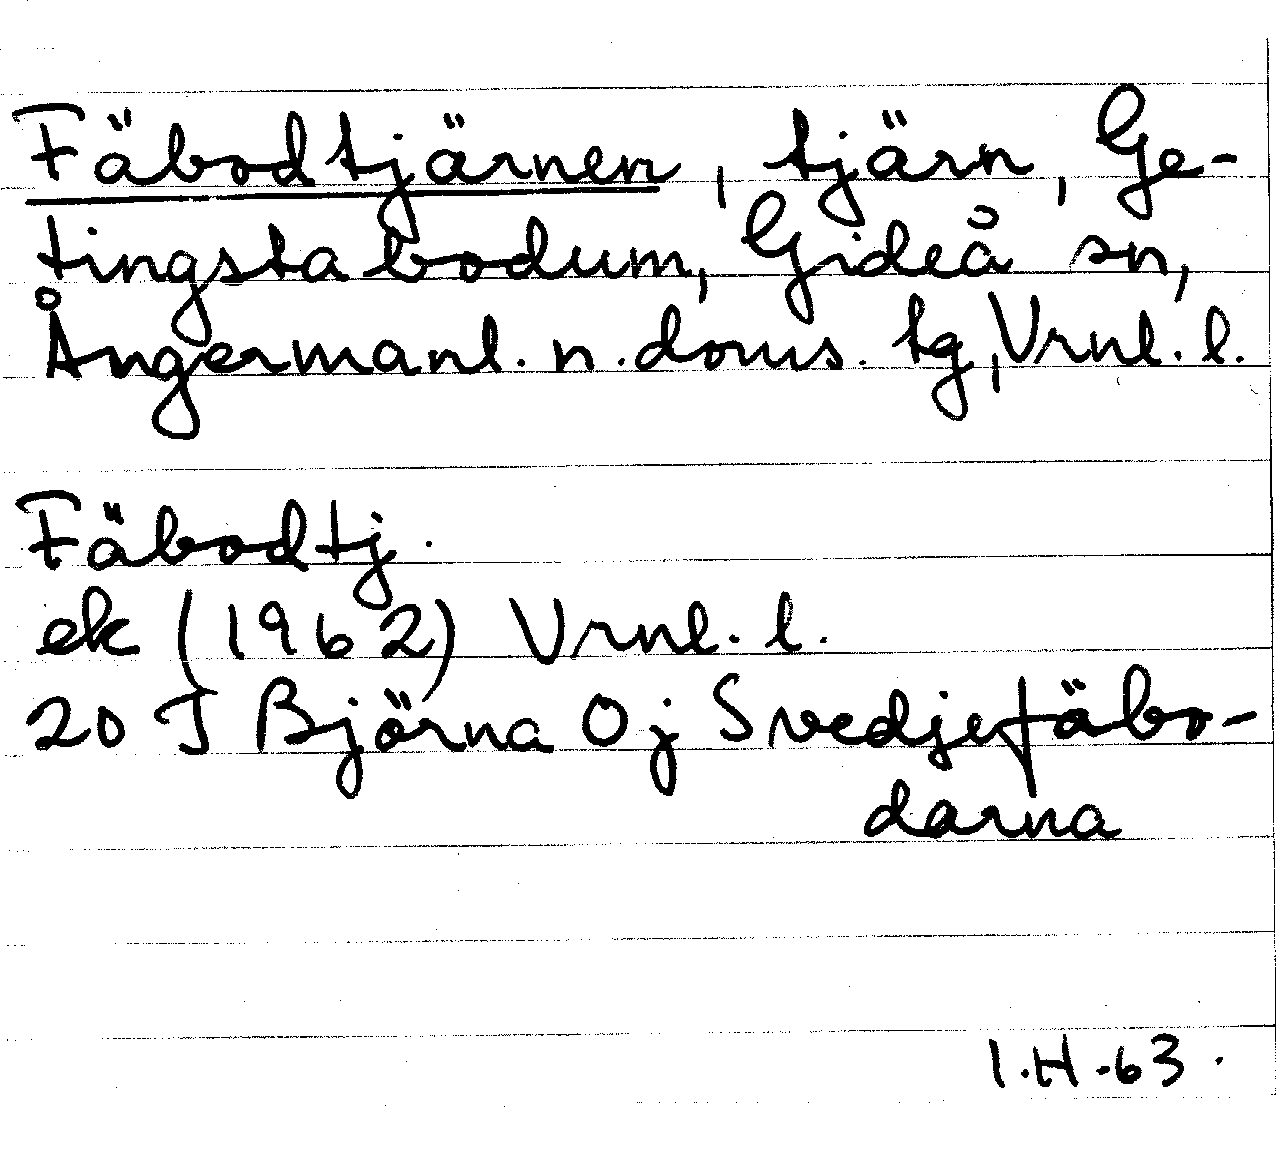 Fäbodtjärnen, tjärn, Ge-
tingstabodum, Gideå sn,
Ångermanl. n. doms. tg, Vrnl. l.
Fäbodtj.
ek (1962) Vrnl. l.
20 J Björna 0 j Svedjefäbo-
darna
I.H.-63.